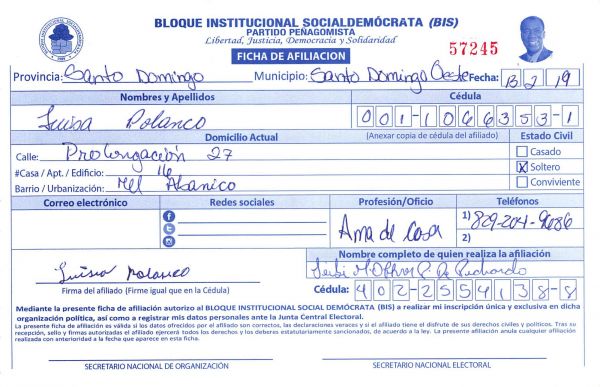 BLOQUE INSTITUCIONAL SOCIALDEMÓCRATA (BIS)
PARTIDO PEÑAGOMISTA
Libertad, Justicia, Democracia y Solidaridad
FICHA DE AFILIACION
57245
Provincia: Santo Domingo Municipio: Santo Domingo Oeste Fecha: 13 2 19
Nombres y Apellidos Cédula
Luisa Polanco 001-1066353-1
Domicilio Actual (Anexar copia de cédula del afiliado) Estado Civil
Calle: Prolongación 27 Casado
#Casa / Apt. / Edificio: 16 X Soltero
Barrio / Urbanización: El Abanico Conviviente
Correo electrónico Redes sociales Profesión/Oficio Teléfonos
Ama de Casa 1) 829-204-9686
2)
Nombre completo de quien realiza la afiliación
Luisa Polanco
Firma del afiliado (Firme igual que en la Cédula) Cédula: 402-2554138-8
Mediante la presente ficha de afiliación autorizo al BLOQUE INSTITUCIONAL SOCIAL DEMÓCRATA (BIS) a realizar mi inscripción única y exclusiva en dicha
organización política, así como a registrar mis datos personales ante la Junta Central Electoral.
La presente ficha de afiliación es válida si los datos ofrecidos por el afiliado son correctos, las declaraciones veraces y si el afiliado tiene el disfrute de sus derechos civiles y políticos. Tras su
recepción, sello y firmas autorizadas el afiliado ejercerá todos los derechos y los deberes estatutariamente sancionados, de acuerdo a la ley. La presente afiliación anula cualquier afiliación
realizada con anterioridad a la fecha que aparece en esta ficha.
SECRETARIO NACIONAL DE ORGANIZACIÓN SECRETARIO NACIONAL ELECTORAL